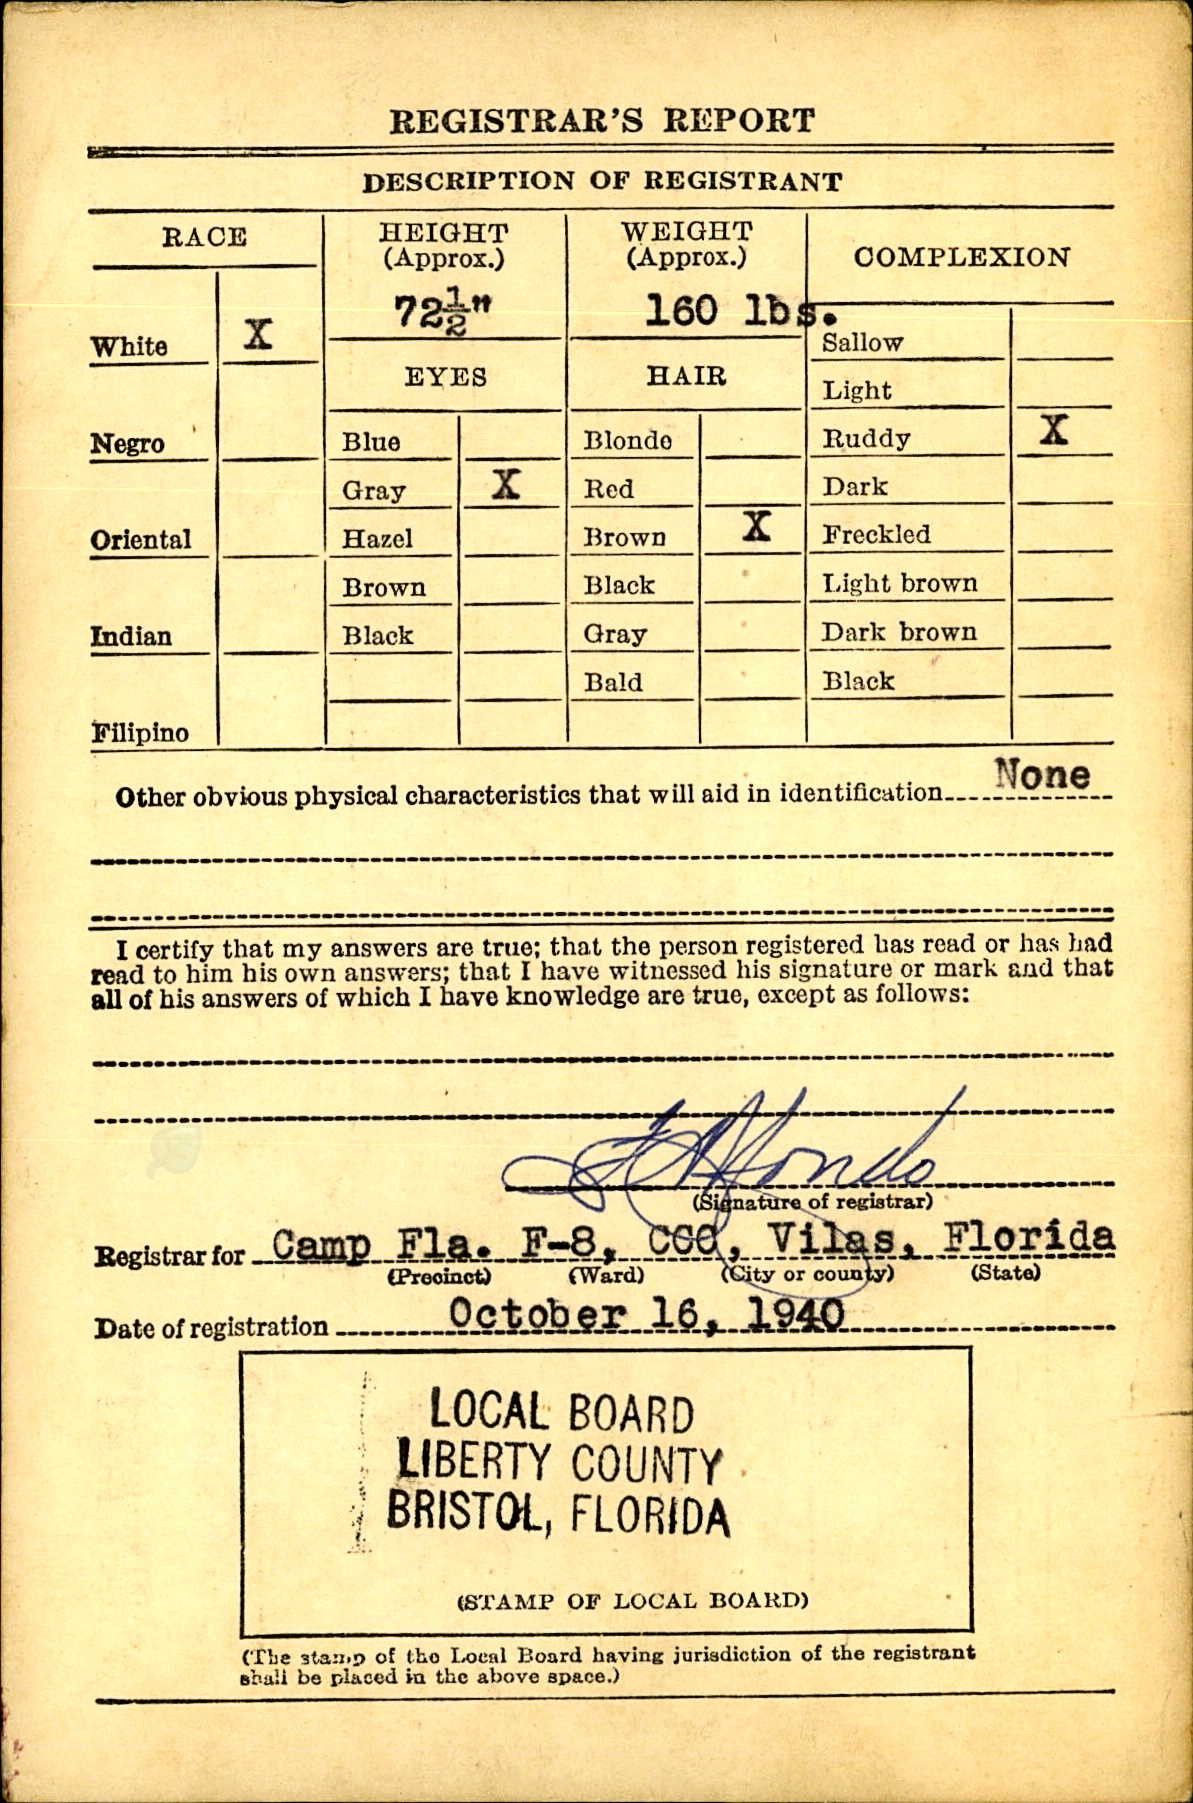 REGISTRAR'S REPORT
DESCRIPTION OF REGISTRANT
RACE
HEIGHT
(Approx.)
WEIGHT
(Approx.)
COMPLEXION
72½"
160 lbs.
White X
Sallow
EYES
HAIR
Light
Negro
Blue
Blonde
Ruddy X
Gray X
Red
Dark
Oriental
Hazel
Brown X
Freckled
Brown
Black
Light brown
Indian
Black
Gray
Dark brown
Bald
Black
Filipino
Other obvious physical characteristics that will aid in identification None
I certify that my answers are true; that the person registered has read or has had
read to him his own answers; that I have witnessed his signature or mark and that
all of his answers of which I have knowledge are true, except as follows:
(Signature of registrar)
Registrar for Camp Fla. F-8, CCC, Vilas, Florida
(Precinct) (Ward) (City or county) (State)
Date of registration October 16, 1940
LOCAL BOARD
LIBERTY COUNTY
BRISTOL, FLORIDA
(STAMP OF LOCAL BOARD)
(The stamp of the Local Board having jurisdiction of the registrant
shall be placed in the above space.)